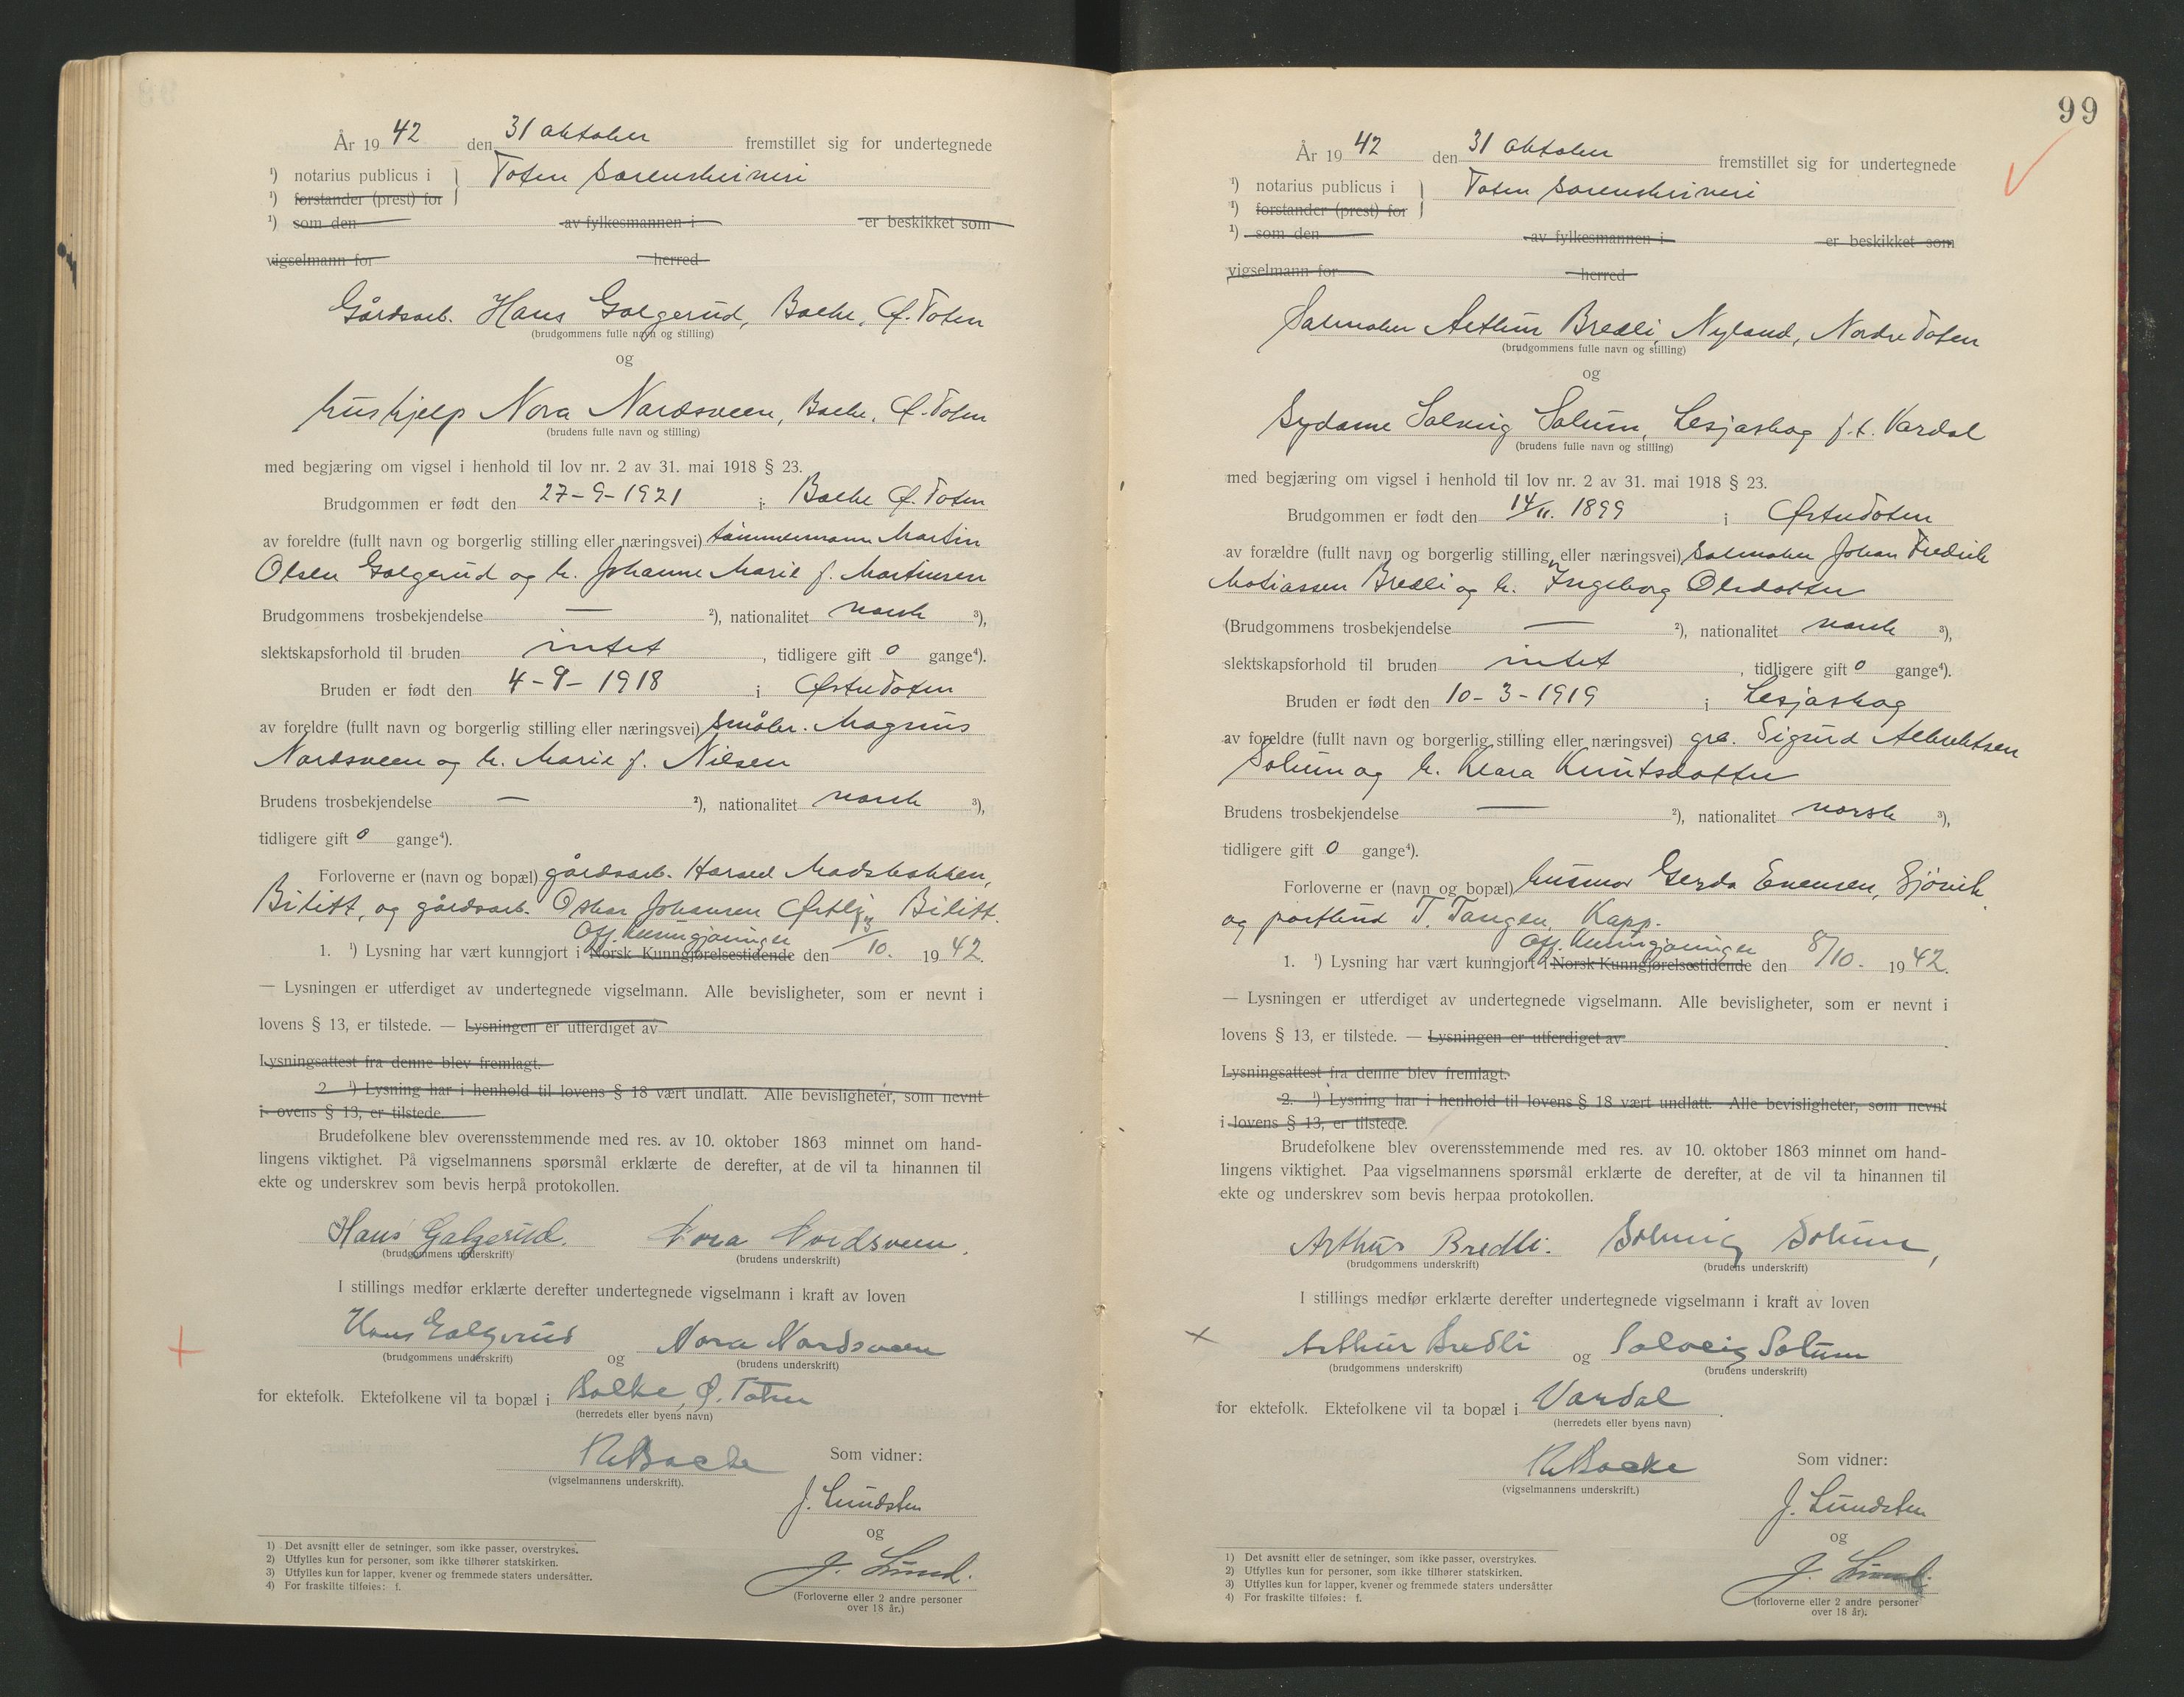 År 1942 den 31 oktober fremstillet sig for undertegnede
¹) notarius publicus i } Toten Sorenskriveri
¹) forstander (prest) for
¹) som den av fylkesmannen i er beskikket som
vigselmann for herred
Gårdsarb. Hans Galgerud, Bølke, Ø. Toten
(brudgommens fulle navn og stilling)
og
hushjelp Nora Nordsveen, Bølke, Ø. Toten
(brudens fulle navn og stilling)
med begjæring om vigsel i henhold til lov nr. 2 av 31. mai 1918 § 23.
Brudgommen er født den 27-9-1921 i Bølke Ø. Toten
av foreldre (fullt navn og borgerlig stilling eller næringsvei) tømmermann Martin
Olsen Galgerud og h. Johanne Marie f. Martinsen
Brudgommens trosbekjendelse — ²), nationalitet norsk ³),
slektskapsforhold til bruden intet, tidligere gift 0 gange⁴).
Bruden er født den 4-9-1918 i Østre Toten
av foreldre (fullt navn og borgerlig stilling eller næringsvei) småbr. Magnus
Nordsveen og h. Marie f. Nilsen
Brudens trosbekjendelse — ²), nationalitet norsk ³),
tidligere gift 0 gange⁴).
Forloverne er (navn og bopæl) gårdsarb. Harald Madsbakken,
Bilitt, og gårdsarb. Oskar Johansen Østby, Bilitt.
Off. Kunngjøringer
1. ¹) Lysning har vært kunngjort i Norsk Kunngjørelsestidende den /10. 1942.
— Lysningen er utferdiget av undertegnede vigselmann. Alle bevisligheter, som er nevnt i
lovens § 13, er tilstede. — Lysningen er utferdiget av
Lysningsattest fra denne blev fremlagt.
2. ¹) Lysning har i henhold til lovens § 18 vært undlatt. Alle bevisligheter, som nevnt
i ovens § 13, er tilstede.
Brudefolkene blev overensstemmende med res. av 10. oktober 1863 minnet om hand-
lingens viktighet. På vigselmannens spørsmål erklærte de derefter, at de vil ta hinannen til
ekte og underskrev som bevis herpå protokollen.
Hans Galgerud. Nora Nordsveen.
(brudgommens underskrift) (brudens underskrift)
I stillings medfør erklærte derefter undertegnede vigselmann i kraft av loven
Hans Galgerud og Nora Nordsveen
(brudgommens underskrift) (brudens underskrift)
for ektefolk. Ektefolkene vil ta bopæl i Bølke, Ø. Toten
(herredets eller byens navn)
Som vidner:
(vigselmannens underskrift).
J. Lundsten
og
J. Lund.
(Forloverne eller 2 andre personer
over 18 år.)
1) Det avsnitt eller de setninger, som ikke passer, overstrykes.
2) Utfylles kun for personer, som ikke tilhører statskirken.
3) Utfylles kun for lapper, kvener og fremmede staters undersåtter.
4) For fraskilte tilføies: f.
99
År 1942 den 31 oktober fremstillet sig for undertegnede
¹) notarius publicus i } Toten Sorenskriveri
¹) forstander (prest) for
¹) som den av fylkesmannen i er beskikket som
vigselmann for herred
Salmaker Arthur Bredli, Nyland, Nordre Toten
(brudgommens fulle navn og stilling)
og
Sydame Solveig Solum, Lesjaskog f.t. Vardal
(brudens fulle navn og stilling)
med begjæring om vigsel i henhold til lov nr. 2 av 31. mai 1918 § 23.
Brudgommen er født den 14/11. 1899 i Østre Toten
av forældre (fullt navn og borgerlig stilling eller næringsvei) salmaker Johan Fredrik
Matiassen Bredli og h. Ingeborg Olsdatter
(Brudgommens trosbekjendelse — ²), nationalitet norsk ³),
slektskapsforhold til bruden intet, tidligere gift 0 gange⁴).
Bruden er født den 10-3-1919 i Lesjaskog
av foreldre (fullt navn og borgerlig stilling eller næringsvei) grb. Sigurd Albriktsen
Solum og h. Klara Knutsdatter
Brudens trosbekjendelse — ²), nationalitet norsk ³),
tidligere gift 0 gange⁴).
Forloverne er (navn og bopæl) husmor Gerda Evensen, Gjøvik,
og postbud T. Tangen, Kapp.
Off. Kunngjøringer
1. ¹) Lysning har vært kunngjort i Norsk Kunngjørelsestidende den 8/10. 1942.
— Lysningen er utferdiget av undertegnede vigselmann. Alle bevisligheter, som er nevnt i
lovens § 13, er tilstede. — Lysningen er utferdiget av
Lysningsattest fra denne blev fremlagt.
2. ¹) Lysning har i henhold til lovens § 18 vært undlatt. Alle bevisligheter, som nevnt
i lovens § 13, er tilstede.
Brudefolkene blev overensstemmende med res. av 10. oktober 1863 minnet om hand-
lingens viktighet. Paa vigselmannens spørsmål erklærte de derefter, at de vil ta hinannen til
ekte og underskrev som bevis herpaa protokollen.
Arthur Bredli. Solveig Solum,
(brudgommens underskrift) (brudens underskrift)
I stillings medfør erklærte derefter undertegnede vigselmann i kraft av loven
Arthur Bredli og Solveig Solum
(brudgommens underskrift) (brudens underskrift)
for ektefolk. Ektefolkene vil ta bopæl i Vardal
(herredets eller byens navn)
Som vidner:
(vigselmannens underskrift.)
J. Lundsten
og
J. Lund.
(forloverne eller 2 andre personer
over 18 år).
1) Det avsnitt eller de setninger, som ikke passer, overstrykes.
2) Utfylles kun for personer, som ikke tilhører statskirken.
3) Utfylles kun for lapper, kvener og fremmede staters undersåtter
4) For fraskilte tilføies: f.